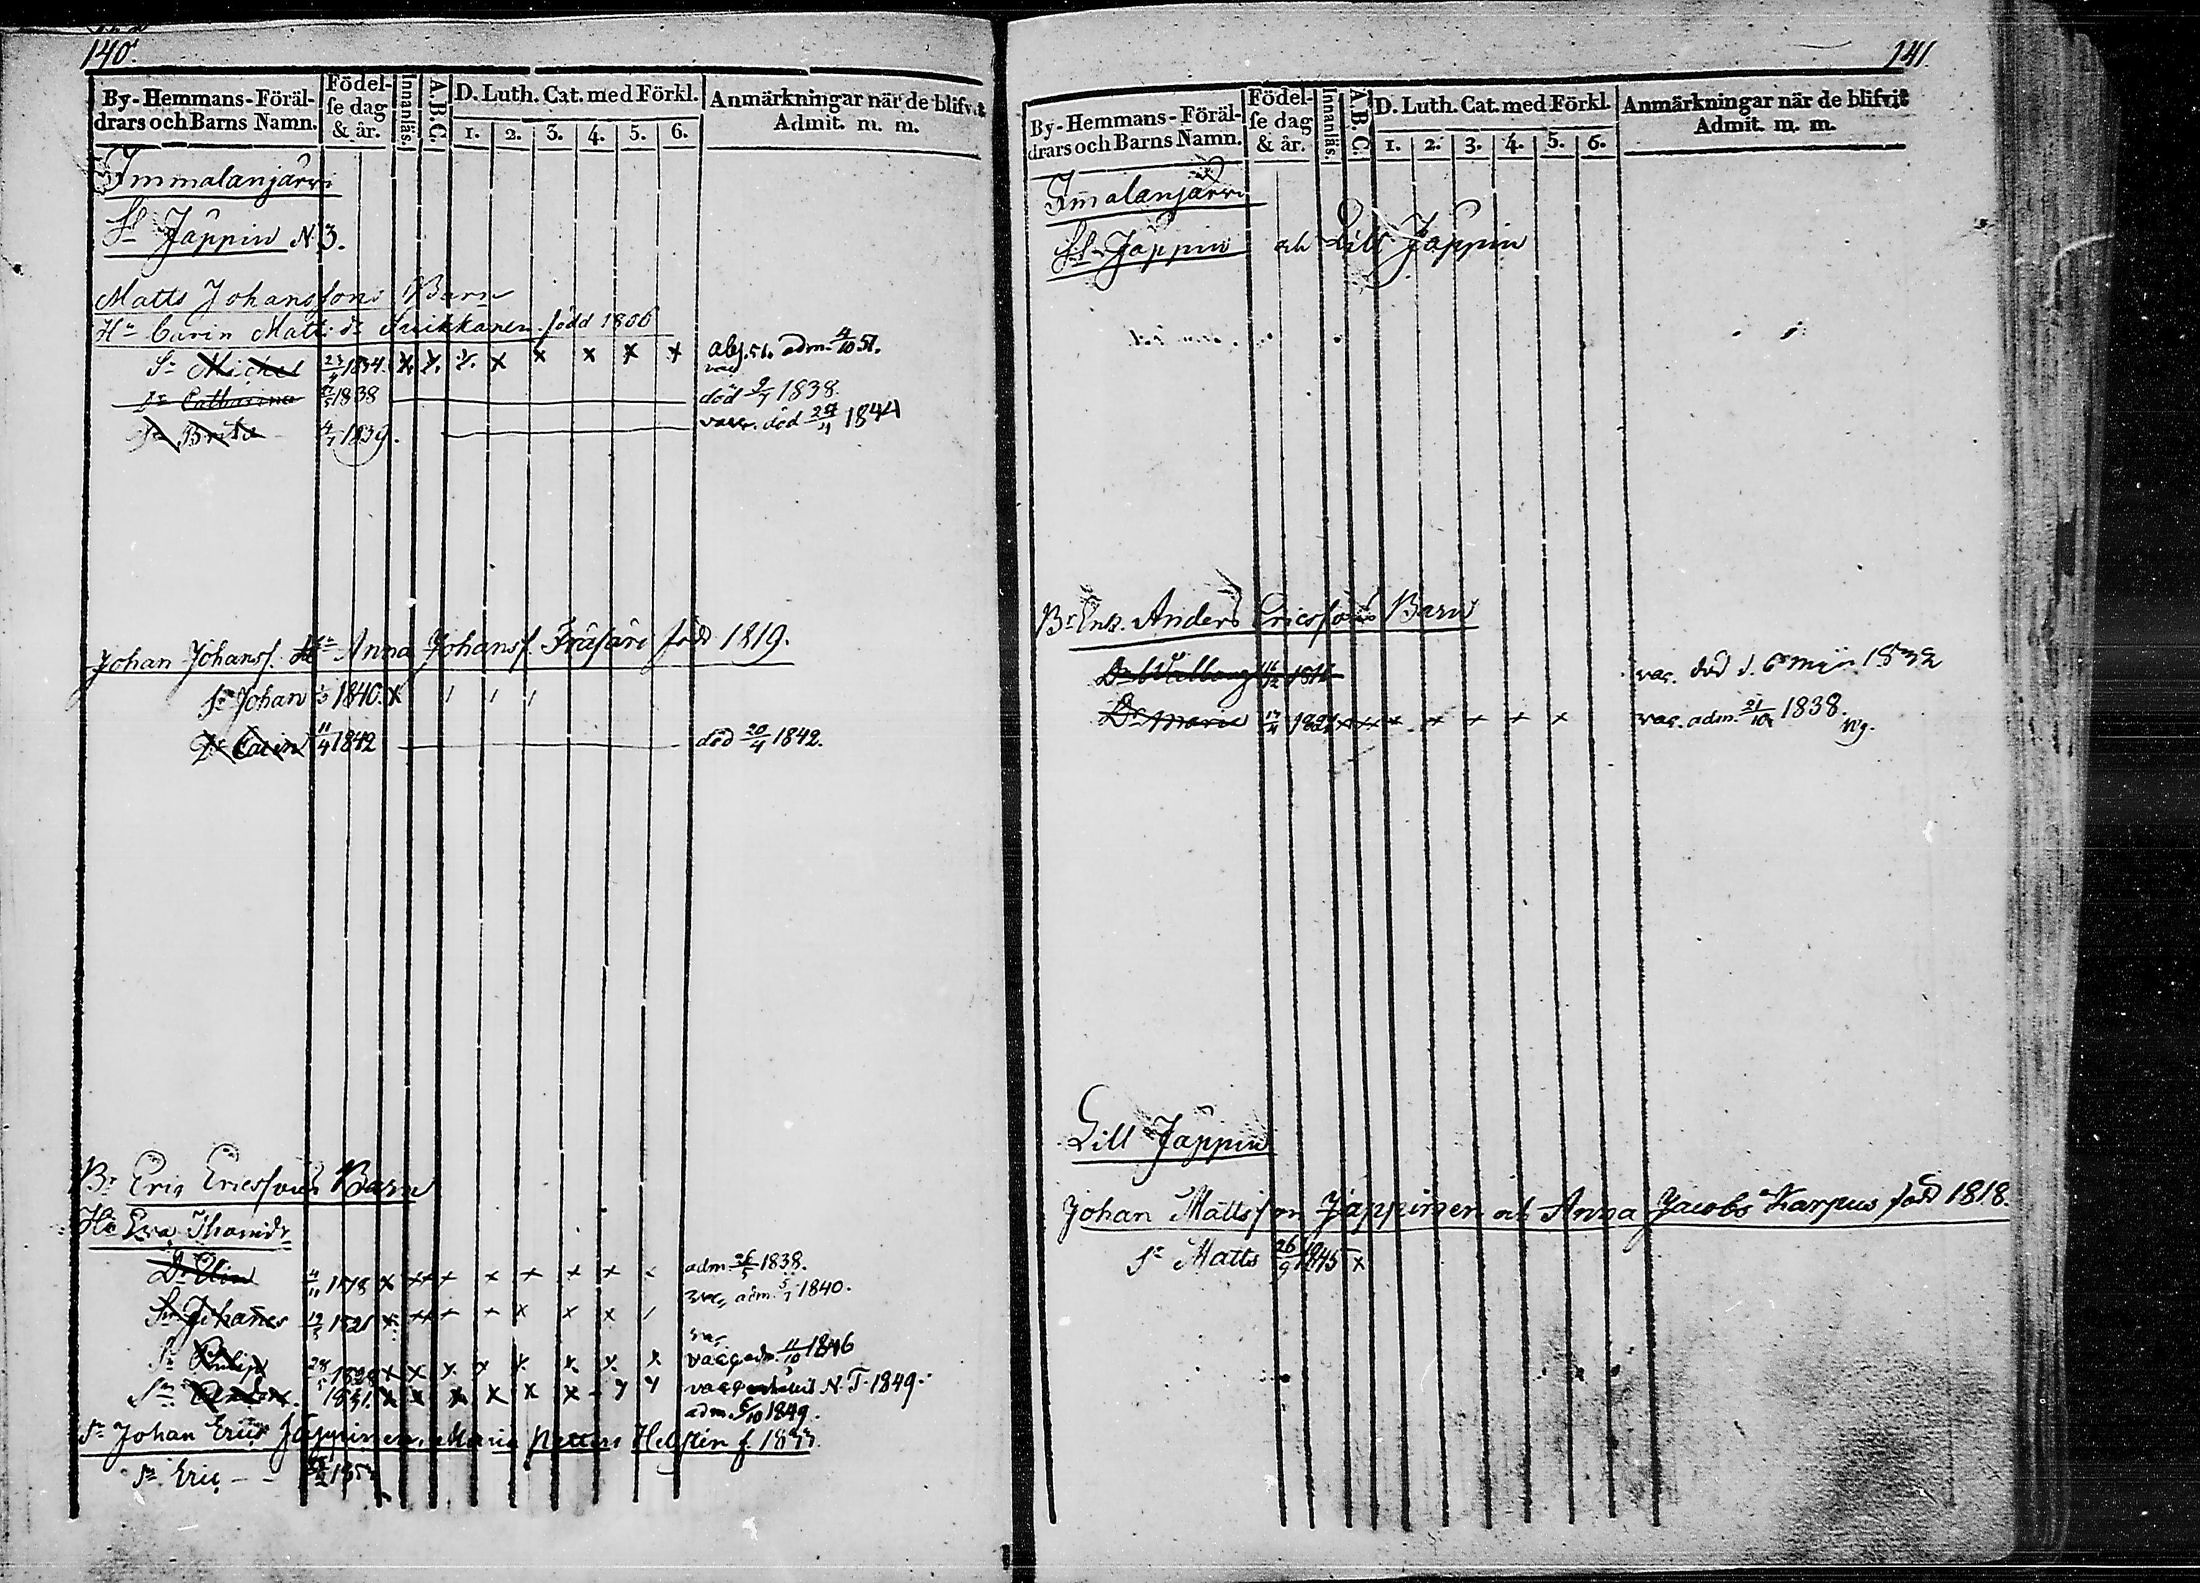 140.
By-Hemmans-Föräl-
drars och Barns Namn.
Födel-
se dag
& år.
Innanläs.
A.B.C.
D. Luth. Cat. med Förkl.
1. 2. 3. 4. 5. 6.
Anmärkningar när de blifvit
Admit. m. m.
Immalanjärvi
St Jäppin N 3.
Matts Johanssons Barn
Hu Carin Matts dr född 1806
Sn Michel 23/4 1834. x x x x x x x x adm. 4/10 51.
vac
Dr Catharina 1838 död 9/7 1838.
Dr Brita 1839. vacc. död 1844
Johan Johanss. Hu Anna Johanss. född 1819.
Sn Johan 1840. x
Dr Carin 11/4 1842 död 20/4 1842.
Br Eric Ericssons Barn
Hu Eva Thomdr
Dr Elin 1818 x x x x x x x adm 1838.
vac. adm. 5/7 1840.
Sn Johanes 1821 x x x x x x x
vac
Sn Philip 1828 x x x x x x x x vacc. adm. 11/10 1846
Sn 1831. x x x x x x vacc N. T. 1849.
adm. 1849.
Sn Johan Erics Jäppinen, Maria Petters f. 1833.
Sn Eric - -
141.
By-Hemmans-Föräl-
drars och Barns Namn.
Födel-
se dag
& år.
Innanläs.
A.B.C.
D. Luth. Cat. med Förkl.
1. 2. 3. 4. 5. 6.
Anmärkningar när de blifvit
Admit. m. m.
Immalanjärvi
St Jäppin och Lill Jäppin
Br Enk. Anders Ericssons Barn
Dr Walborg vac. död d. 6 1832
Dr Maria x x x x x x x vac. adm. 21/10 1838.
Lill Jäppin
Johan Mattsson Jäppinen och Anna Jacobs Karpus född 1818.
Sn Matts 26/9 1845 x